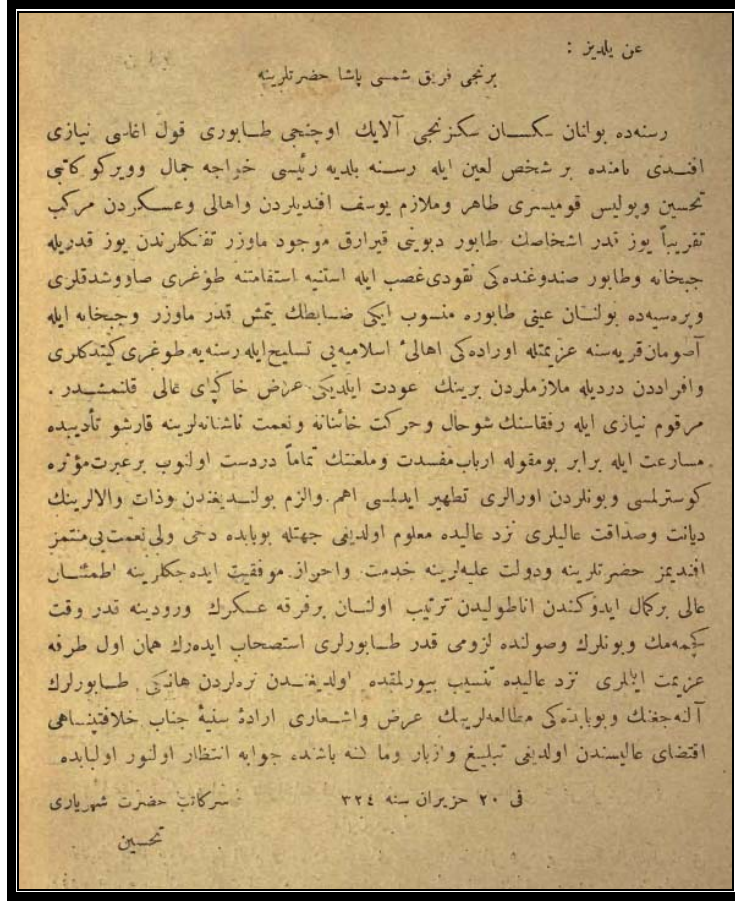 عن يلديز :
برنجى فريق شمسى پاشا حضرتلرينه
رسنه‌ده بولنان سكسان سكزنجى آلايك اوچنجى طابورى قول اغاسى نيازى
افندى نامنده بر شخص لعين ايله رسنه بلديه رئيسى خواجه جمال وويركو كاتبى
تحسين وپوليس قوميسرى طاهر وملازم يوسف افنديلردن واهالى وعسكردن مركب
تقريباً يوز قدر اشخاصك طابور دپوينى قيرارق موجود ماوزر تفنكلرندن يوز قدريله
جبخانه وطابور صندوغنده‌كى نقودى غصب ايله استنيه استقامتنه طوغرى صاووشدقلرى
وپره‌سپه‌ده بولنان عينى طابوره منسوب ايكى ضابطك يتمش قدر ماوزر وجبخانه ايله
آصومان قريه‌سنه عزيمتله اوراده‌كى اهالئ اسلاميه‌يى تسليح ايله رسنه‌يه طوغرى كيتدكلرى
وافراددن درديله ملازملردن برينك عودت ايلديكى عرض خاكپاى عالى قلنمشدر .
مرقوم نيازى ايله رفقاسنك شو حال وحركت خائنانه ونعمت ناشناسانه‌لرينه قارشو تأديبده
مسارعت ايله برابر بومقوله ارباب مفسدت وملعنتك تماماً دردست اولنوب بر عبرت مؤثره
كوسترلمسى وبونلردن اورالرى تطهير ايدلمسى اهم والزم بولنديغندن وذات والالرينك
ديانت وصداقت عاليلرى نزد عاليده معلوم اولديغى جهتله بوبابده دخى ولى نعمت بى‌منتمز
افنديمز حضرتلرينه ودولت عليه‌لرينه خدمت واحراز موفقيت ايده‌جكلرينه اطمئنان
عالى بركمال ايدوكندن اناطوليدن ترتيب اولنان بر فرقه عسكرك ورودينه قدر وقت
كچمه‌مك وبونلرك وصولنده لزومى قدر طابورلرى استصحاب ايده‌رك همان اول طرفه
عزيمت ايلملرى نزد عاليده تنسيب بيورلمقده اولديغندن نره‌لردن هانكى طابورلرك
آلنه‌جغنك وبوبابده‌كى مطالعه‌لرينك عرض واشعارى ارادهٔ سنيهٔ جناب خلافتپناهى
اقتضاى عاليسندن اولديغى تبليغ و ماكنه باشنده جوابه انتظار اولنور اولبابده
فى ٢٠ حزيران سنه ٣٢٤ سركاتب حضرت شهريارى
تحسين